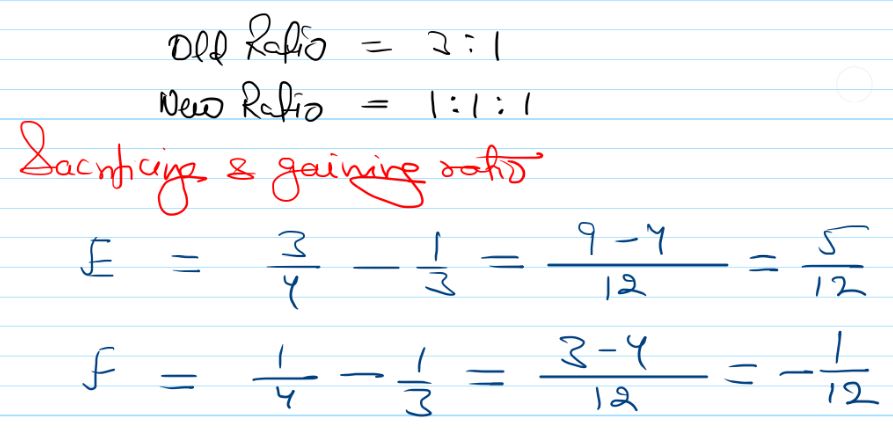 Old Ratio = 3 : 1
New Ratio = 1 : 1 : 1
Sacrificing & gaining ratio
E = 3/4 - 1/3 = 9-4/12 = 5/12
F = 1/4 - 1/3 = 3-4/12 = -1/12